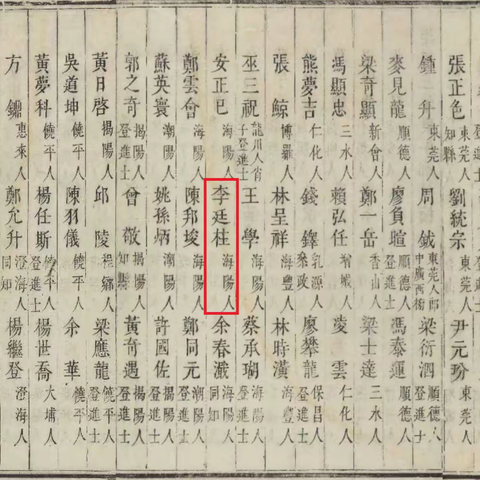 張正色 東莞人知縣 劉統宗 東莞人 尹元玢 東莞人
鍾升 東莞人 周鉞 東莞人郎中廣西 梁衍泗 順德人登進士
麥見龍 順德人 廖負暄 順德人登進士 馮泰運 順德人
梁奇顯 新會人 鄭一岳 香山人 梁士達 三水人
馮顯忠 三水人 賴弘任 增城人 凌雲 仁化人
熊夢吉 仁化人 錢鐸 乳源人叅政 廖攀龍 保昌人登進士
張鯨 博羅人 林呈祥 海豐人 林時潢 海豐人
巫三祝 龍川人省子登進士 王學 海陽人 蔡承瑚 海陽人登進士
安正巳 海陽人 李廷柱 海陽人 余春 海陽人同知
鄭雲會 海陽人 陳邦埈 海陽人 鄭同元 潮陽人登進士
蘇英寰 潮陽人 姚孫炳 潮陽人 許國佐 揭陽人登進士
郭之奇 揭陽人登進士 曾敬 揭陽人知縣 黃奇遇 揭陽人登進士
黃日啓 揭陽人 邱陵 程鄉人 梁應龍 饒平人登進士
吳道坤 饒平人 陳羽儀 饒平人 余華 饒平人
黃夢科 饒平人 楊任斯 饒平人登進士 楊世喬 大埔人
方鏞 惠來人 鄭允升 澄海人同知 楊繼登 澄海人